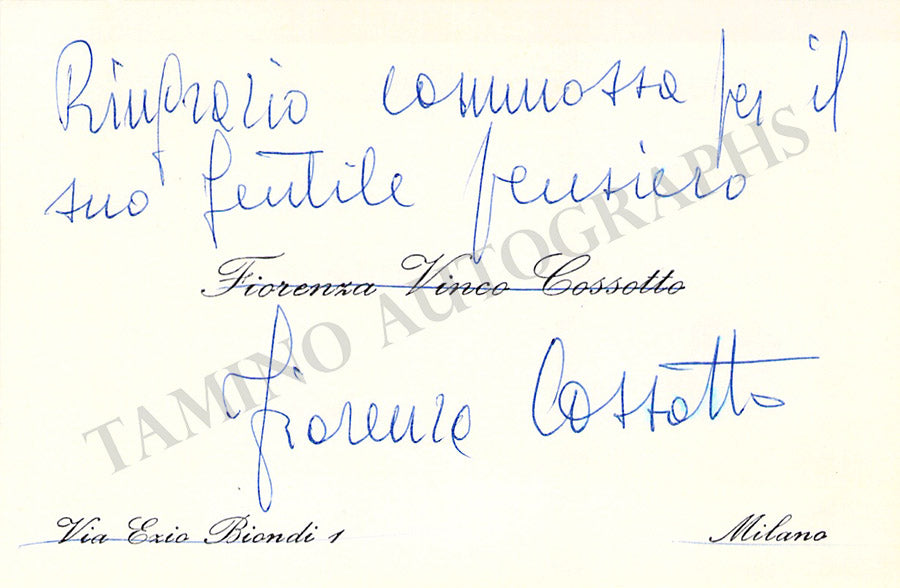 Ringrazio commossa per il
suo gentile pensiero
Fiorenza Vinco Cossotto
TAMINO AUTOGRAPHS
Fiorenza Cossotto
Via Ezio Biondi 1 Milano